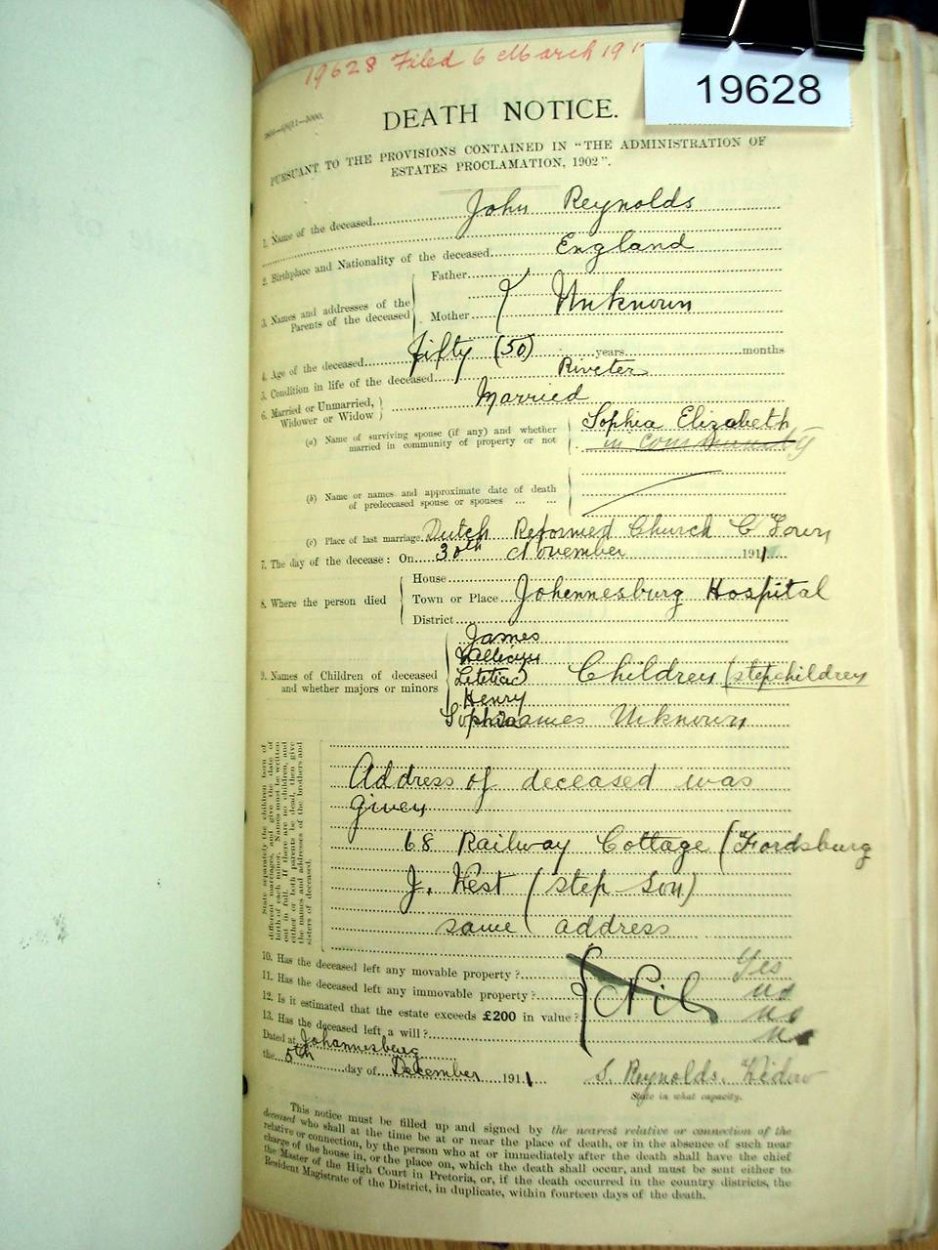 19628 Filed 6 March 191
19628
DEATH NOTICE.
PURSUANT TO THE PROVISIONS CONTAINED IN "THE ADMINISTRATION OF
ESTATES PROCLAMATION, 1902".
1. Name of the deceased John Reynolds
2. Birthplace and Nationality of the deceased England
3. Names and addresses of the Parents of the deceased
Father
Mother
Unknown
4. Age of the deceased fifty (50) years months
5. Condition in life of the deceased Riveter
6. Married or Unmarried, Widower or Widow Married
(a) Name of surviving spouse (if any) and whether married in community of property or not
Sophia Elizabeth
in community
(b) Name or names and approximate date of death of predeceased spouse or spouses ... ...
(c) Place of last marriage Dutch Reformed Church C Town
7. The day of the decease: On 30th November 1911
8. Where the person died
House
Town or Place Johennesburg Hospital
District
9. Names of Children of deceased and whether majors or minors
James
Letitia
Henry
Sophia
Children (stepchildren
names Unknown
State separately the children born of different marriages, and give the date of birth of each minor. Names must be written out in full. If there are no children, and either or both parents be dead, then give the names and addresses of the brothers and sisters of deceased.
Address of deceased was
given
68 Railway Cottage (Fordsburg
J. West (step son)
same address
10. Has the deceased left any movable property? Yes
11. Has the deceased left any immovable property? no
12. Is it estimated that the estate exceeds £200 in value? no
13. Has the deceased left a will? no
Nil
Dated at Johannesburg
the 5th day of December 1911
S. Reynolds, Widow
State in what capacity.
This notice must be filled up and signed by the nearest relative or connection of the
deceased who shall at the time be at or near the place of death, or in the absence of such near
relative or connection, by the person who at or immediately after the death shall have the chief
charge of the house in, or the place on, which the death shall occur, and must be sent either to
the Master of the High Court in Pretoria, or, if the death occurred in the country districts, the
Resident Magistrate of the District, in duplicate, within fourteen days of the death.